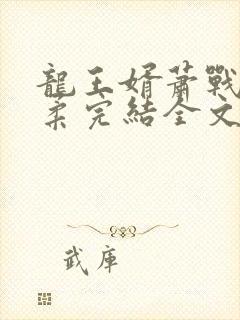 龍王婿蕭戰
柔完結全文
武庫